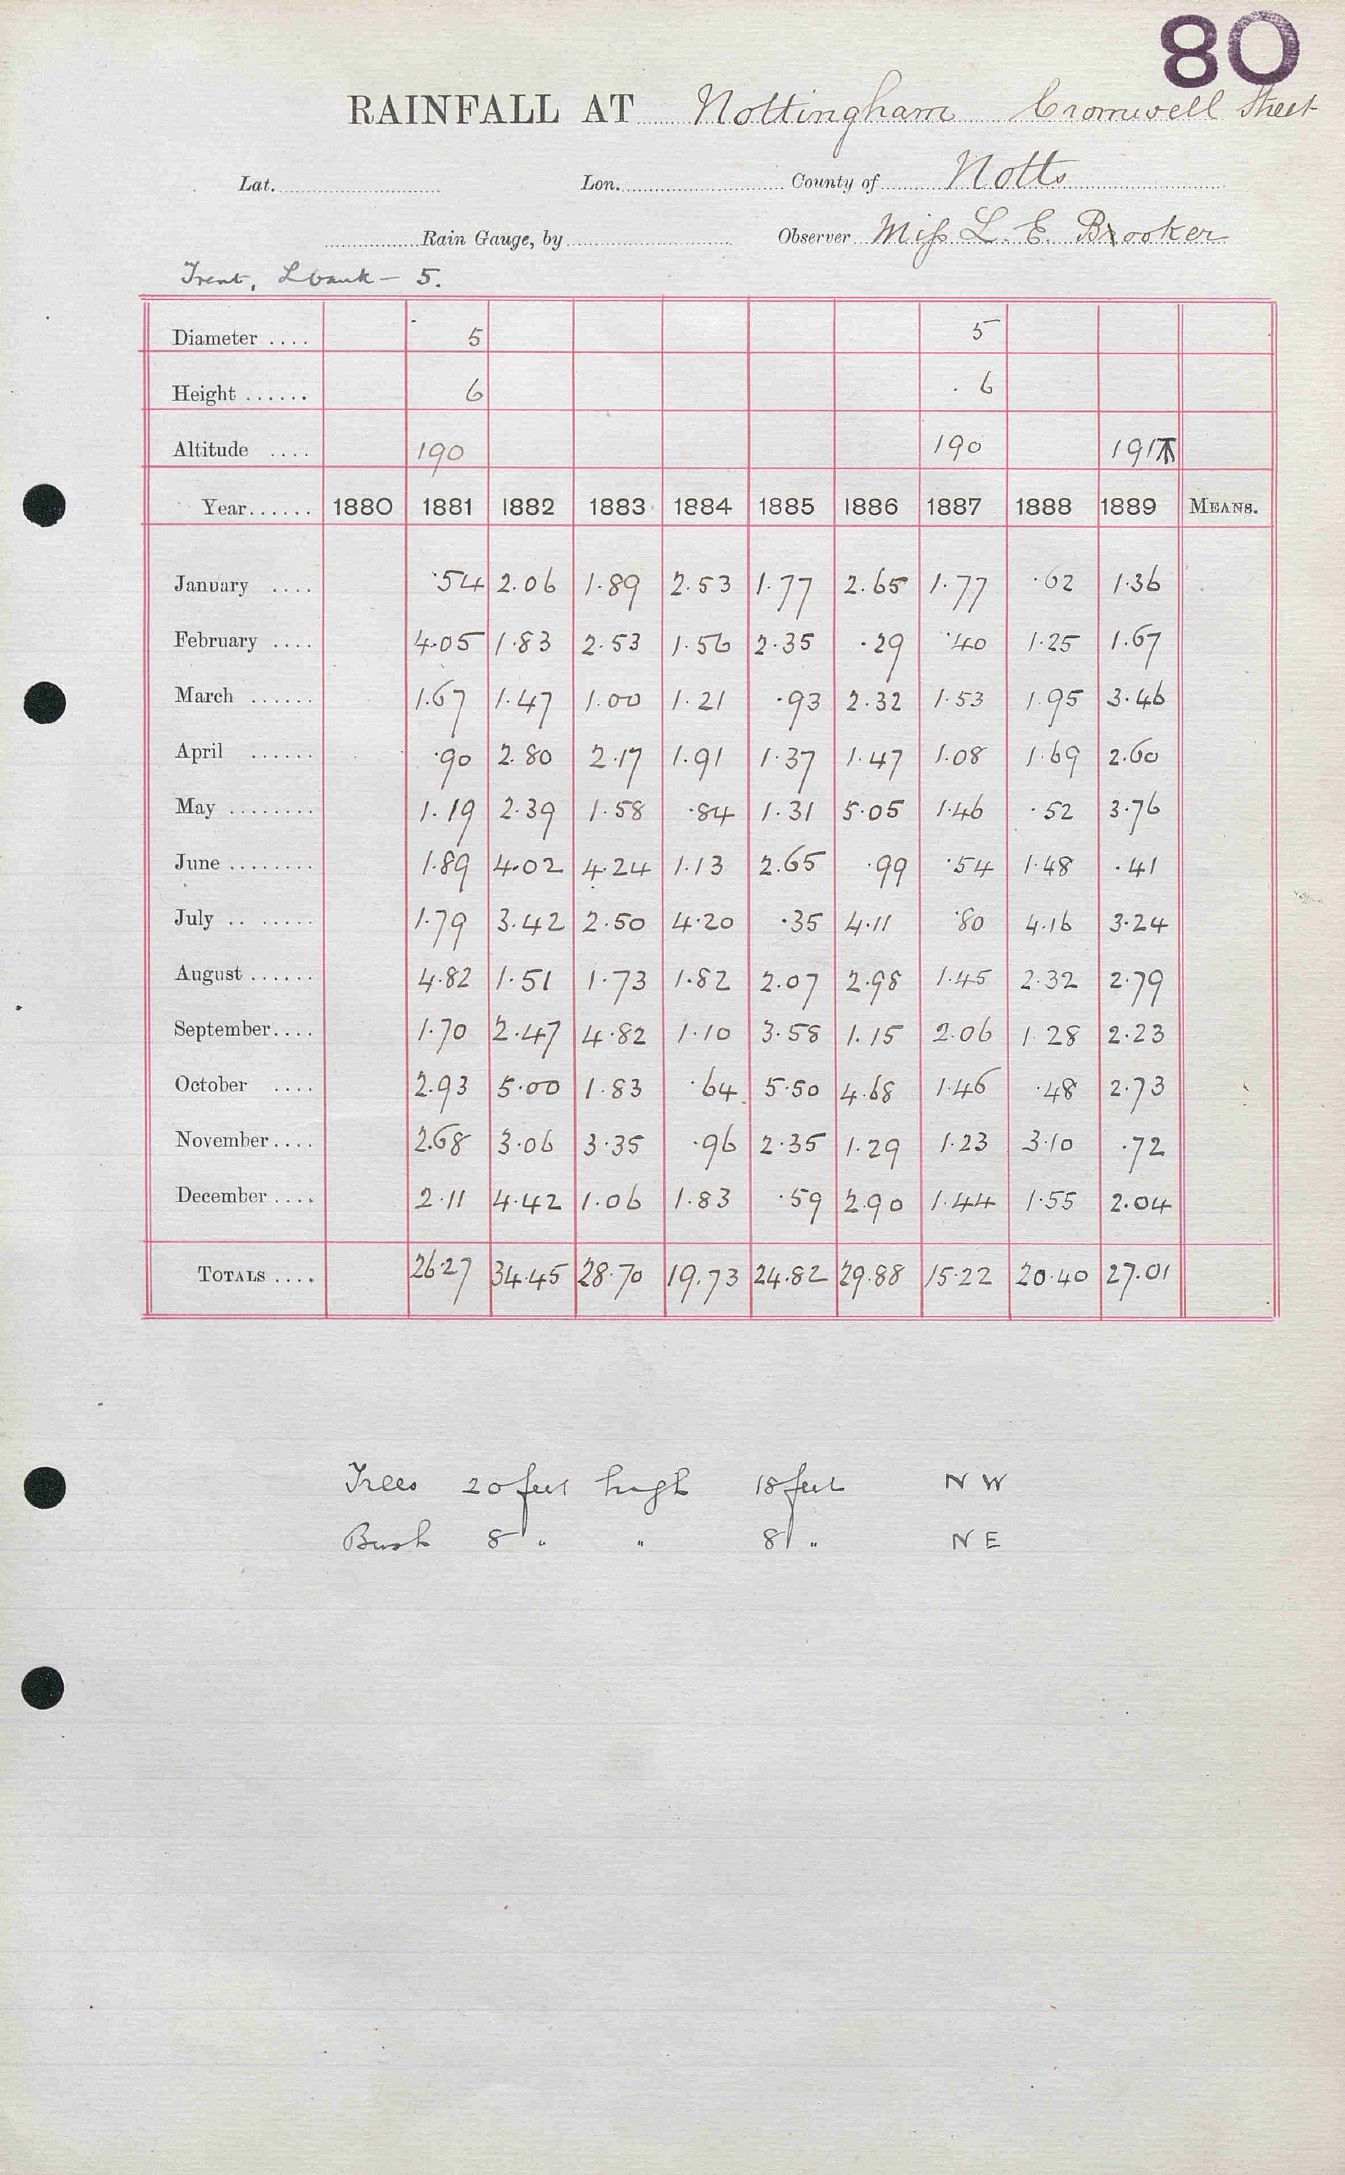 80
RAINFALL AT Nottingham Cromwell Street
Lat. Lon. County of Notts
Rain Gauge, by Observer Miss L. E. Brooker
Trent, L bank — 5.
Diameter .... 5 5
Height ...... 6 6
Altitude .... 190 190 191
Year...... 1880 1881 1882 1883 1884 1885 1886 1887 1888 1889 MEANS.
January .... ·54 2.06 1.89 2.53 1.77 2.65 1.77 ·62 1.36
February .... 4.05 1.83 2.53 1.56 2.35 .29 ·40 1.25 1.67
March ...... 1.67 1.47 1.00 1.21 ·93 2.32 1.53 1.95 3.46
April ...... ·90 2.80 2.17 1.91 1.37 1.47 1.08 1.69 2.60
May ........ 1.19 2.39 1.58 ·84 1.31 5.05 1.46 ·52 3.76
June ........ 1.89 4.02 4.24 1.13 2.65 .99 ·54 1.48 .41
July .. ...... 1.79 3.42 2.50 4.20 ·35 4.11 ·80 4.16 3.24
August ...... 4.82 1.51 1.73 1.82 2.07 2.98 1.45 2.32 2.79
September.... 1.70 2.47 4.82 1.10 3.58 1.15 2.06 1.28 2.23
October .... 2.93 5.00 1.83 ·64 5.50 4.68 1.46 ·48 2.73
November.... 2.68 3.06 3.35 .96 2.35 1.29 1.23 3.10 .72
December .... 2.11 4.42 1.06 1.83 ·59 2.90 1.44 1.55 2.04
TOTALS .... 26.27 34.45 28.70 19.73 24.82 29.88 15.22 20.40 27.01
Trees 20 feet high 18 feet N W
Bush 8 " " 8 " N E